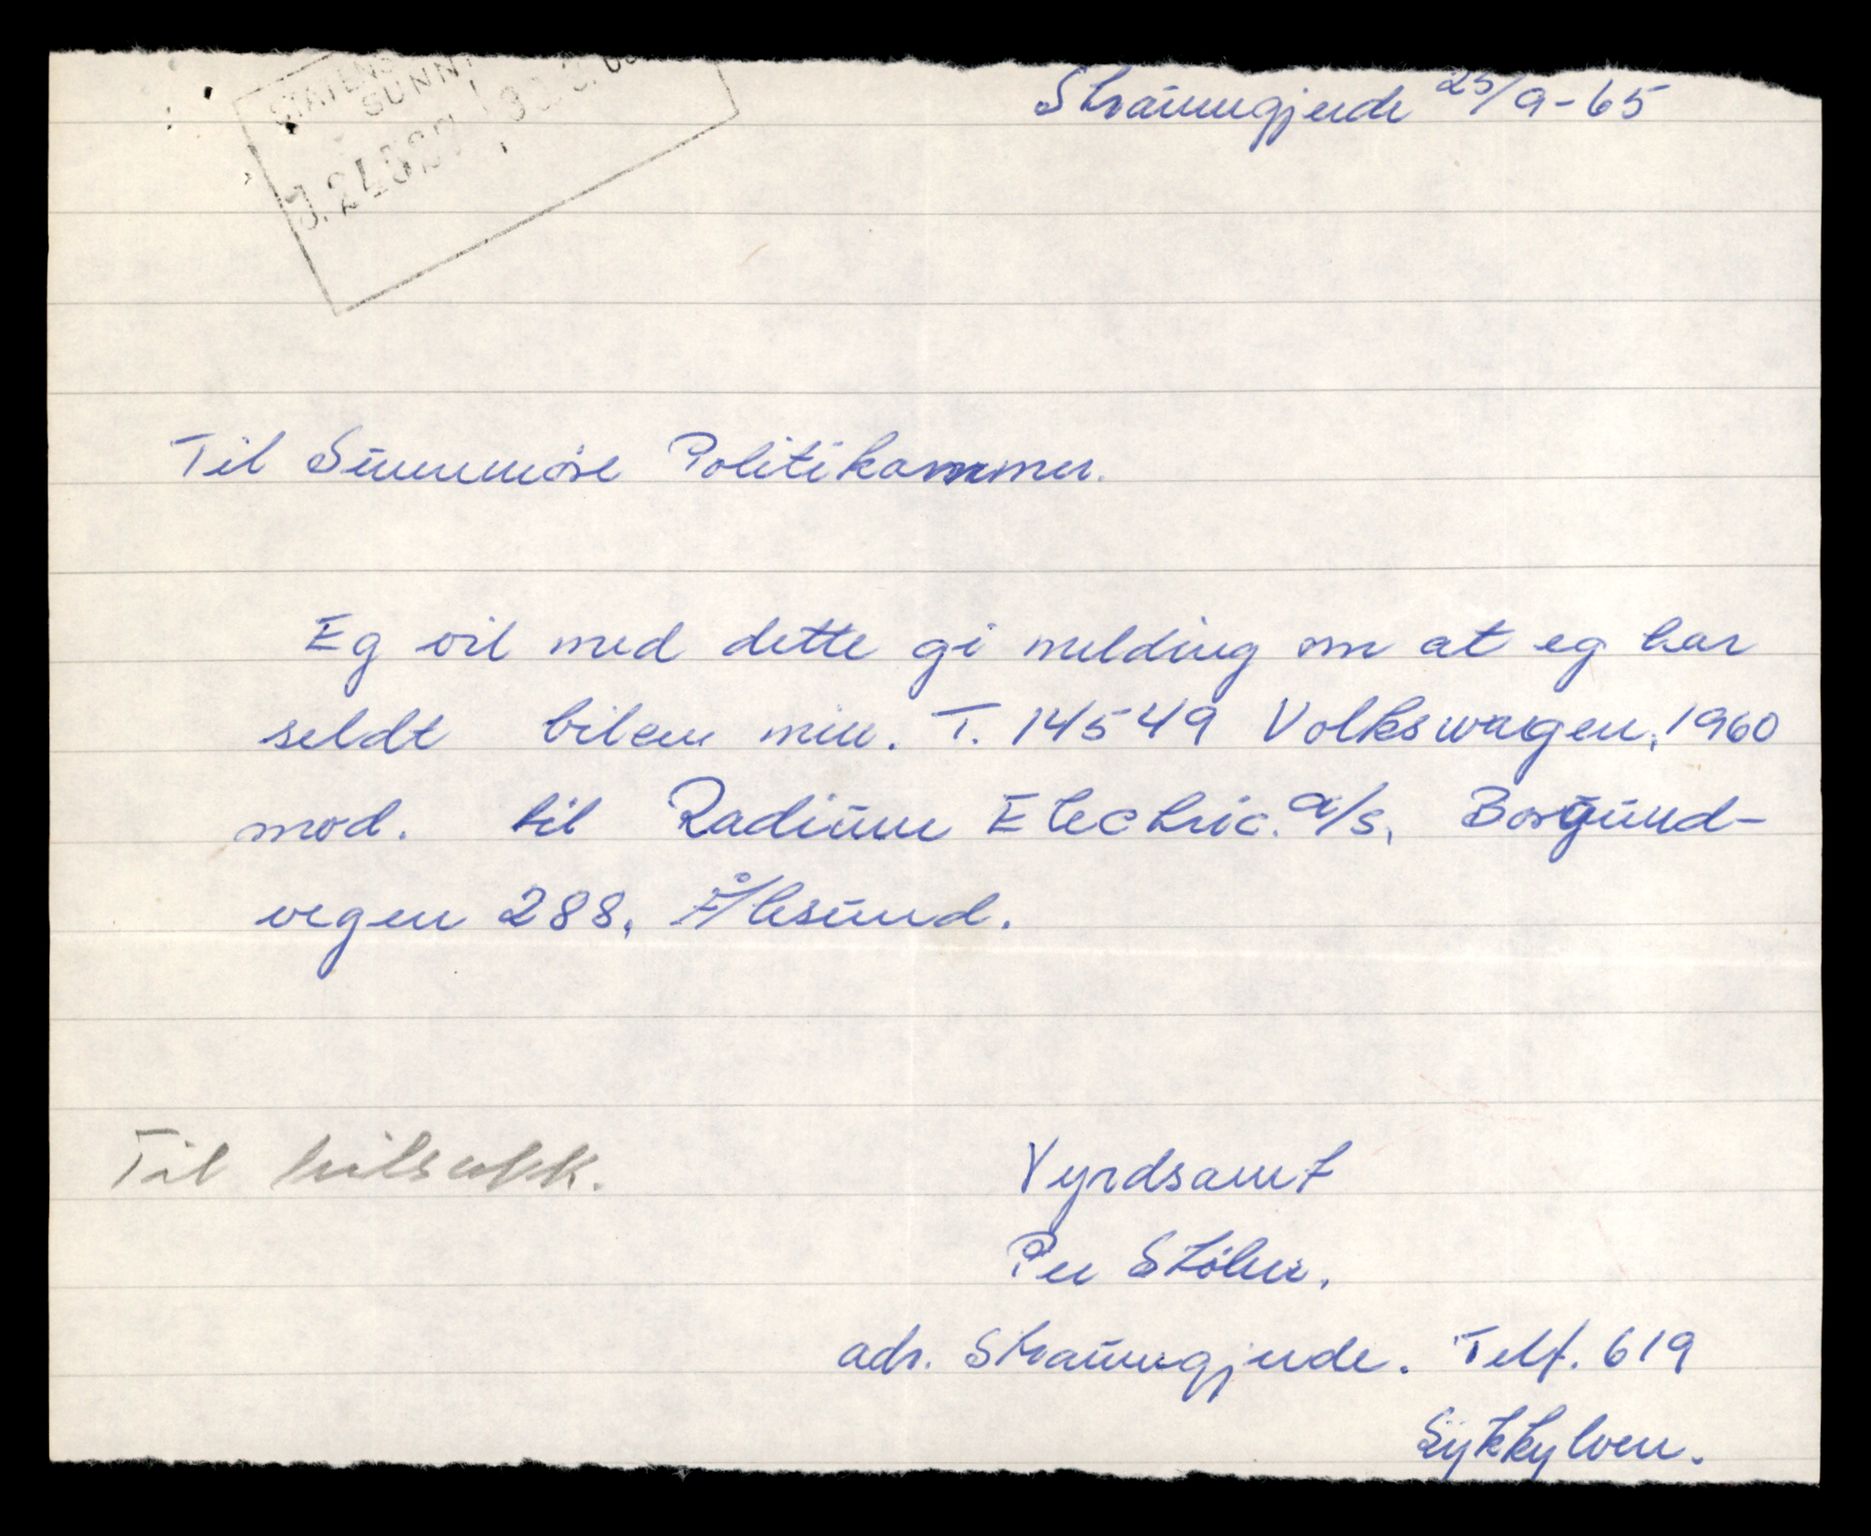 STATENS
SUNN
Straumgjerde 25/9-65
Til Sunnmøre Politikammer.
Eg vil med dette gi melding om at eg har
seldt bilen min. T. 14549 Volkswagen, 1960
mod. til Radium Electric. a/s, Borgund-
vegen 288, Ålesund.
Til bilsakk.
Vyrdsamt
Per Stölen.
adr. Straumgjerde. Telf. 619
Sykkylven.